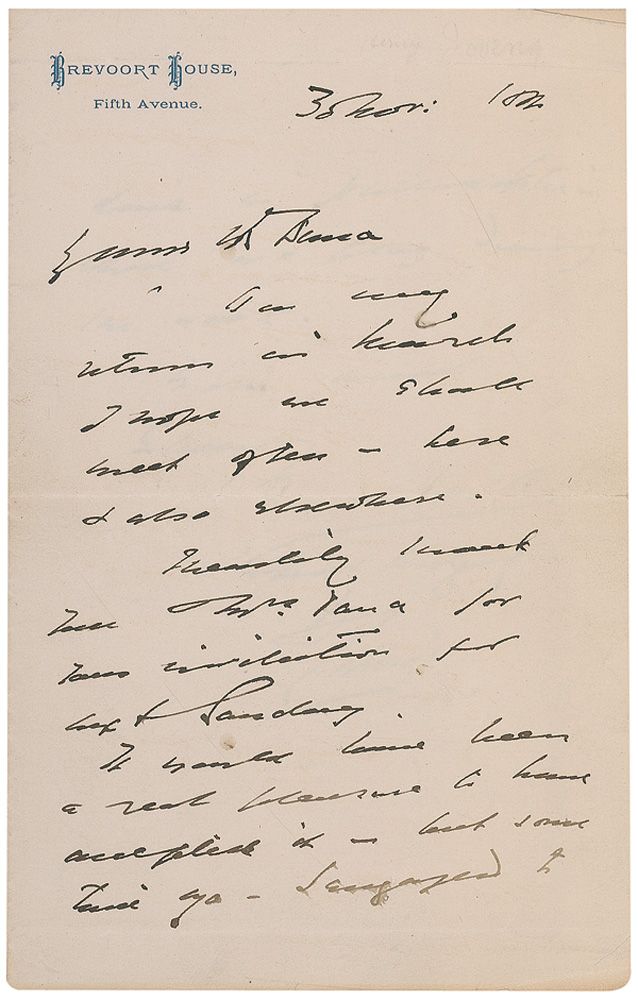 BREVOORT HOUSE,
Fifth Avenue.
30 Nov:
Dear Mr Dana
On my
return in March
I hope we shall
meet often – here
& also elsewhere.
Heartily thank
Mrs Dana for
invitation for
next Sunday.
It would have been
a real pleasure to have
accepted it – but some
time ago – I engaged to